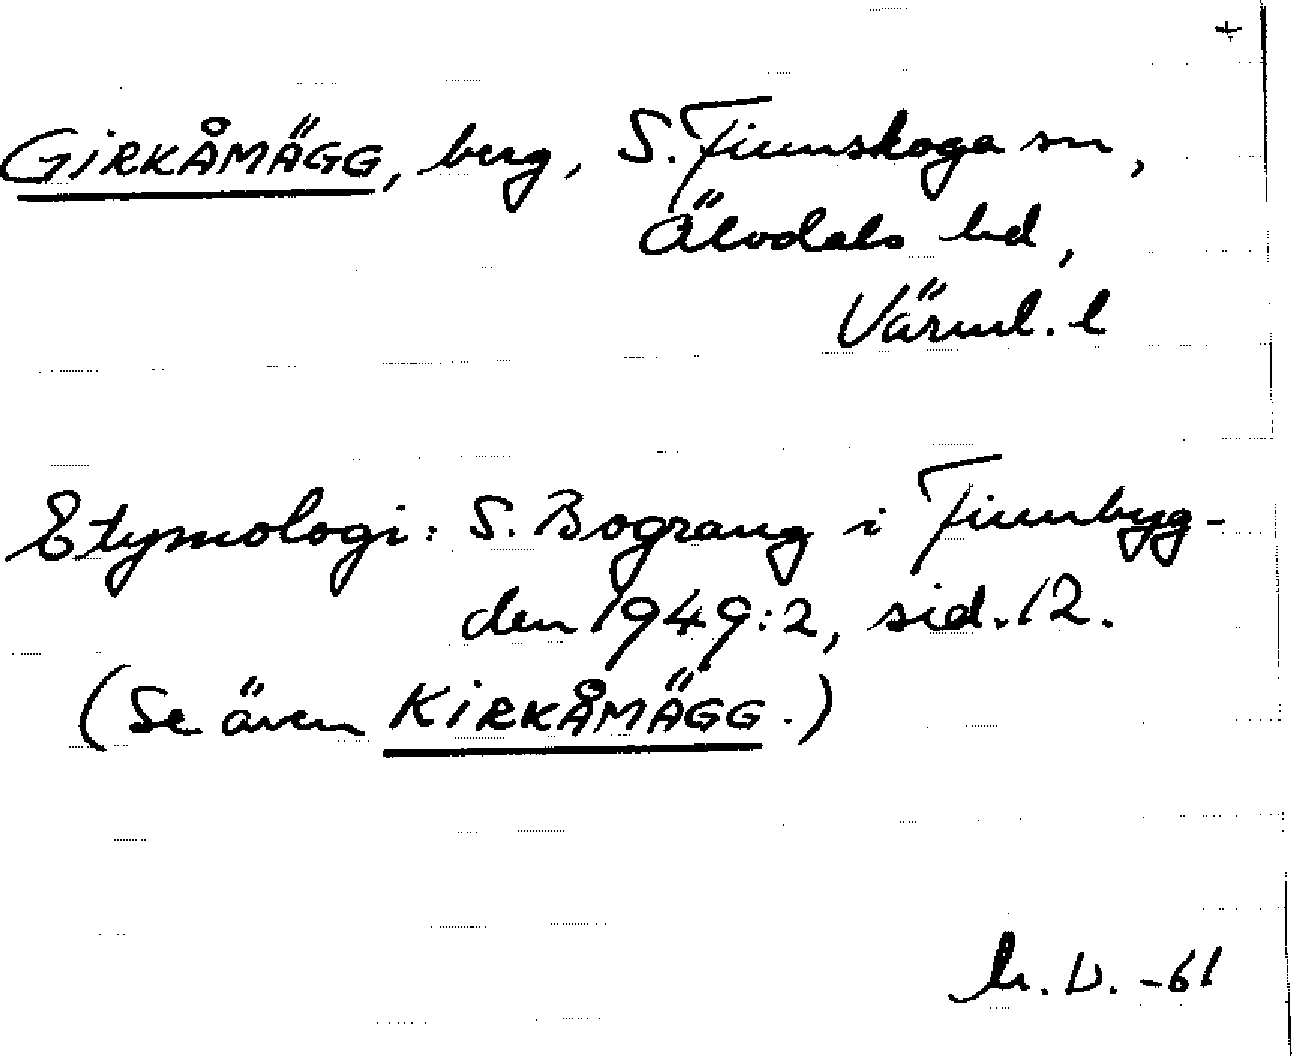 +
GIRKÅMÄGG, berg, S. Finnskoga sn,
Älvdals hd,
Värml. l
Etymologi: S. Bograng i Finnbyg-
den 1949:2, sid. 12.
(Se även KIRKÅMÄGG.)
D. -61